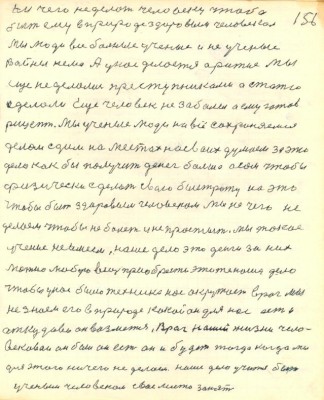 156
Ни чего не делот человеку чтобы
быть ему в природе здоровым человеком
Мы люди все больные ученые и не ученые
равны нема А у нас делается а ритме Мы
еще не делами преступниками а статго
сделоли Еще человек не заболел а ему готов
рицепт. Мы ученые люди на всё сохраняемся
делом сдим на местах на своих думаем за это
дело как бы получить денег больше а если чтобы
физически сделать свою быстроту на это
чтобы быть здоровым человеком мы не чего не
делаем чтобы не болеть и не простыть. Мы такое
учение не имеем, наше дело это деньги за них
можно любую вещ приобрести это техника дело
чтобы у нас было техника нас окружает враг Мы
не знаем его в природе какой он для нас есть
откудова он возметя, Враг нашей жизни чело-
вековой он был он есть он и будет тогда когда мы
для этого ничего не делаем. наше дело учится быть
ученым человеком свое место занять